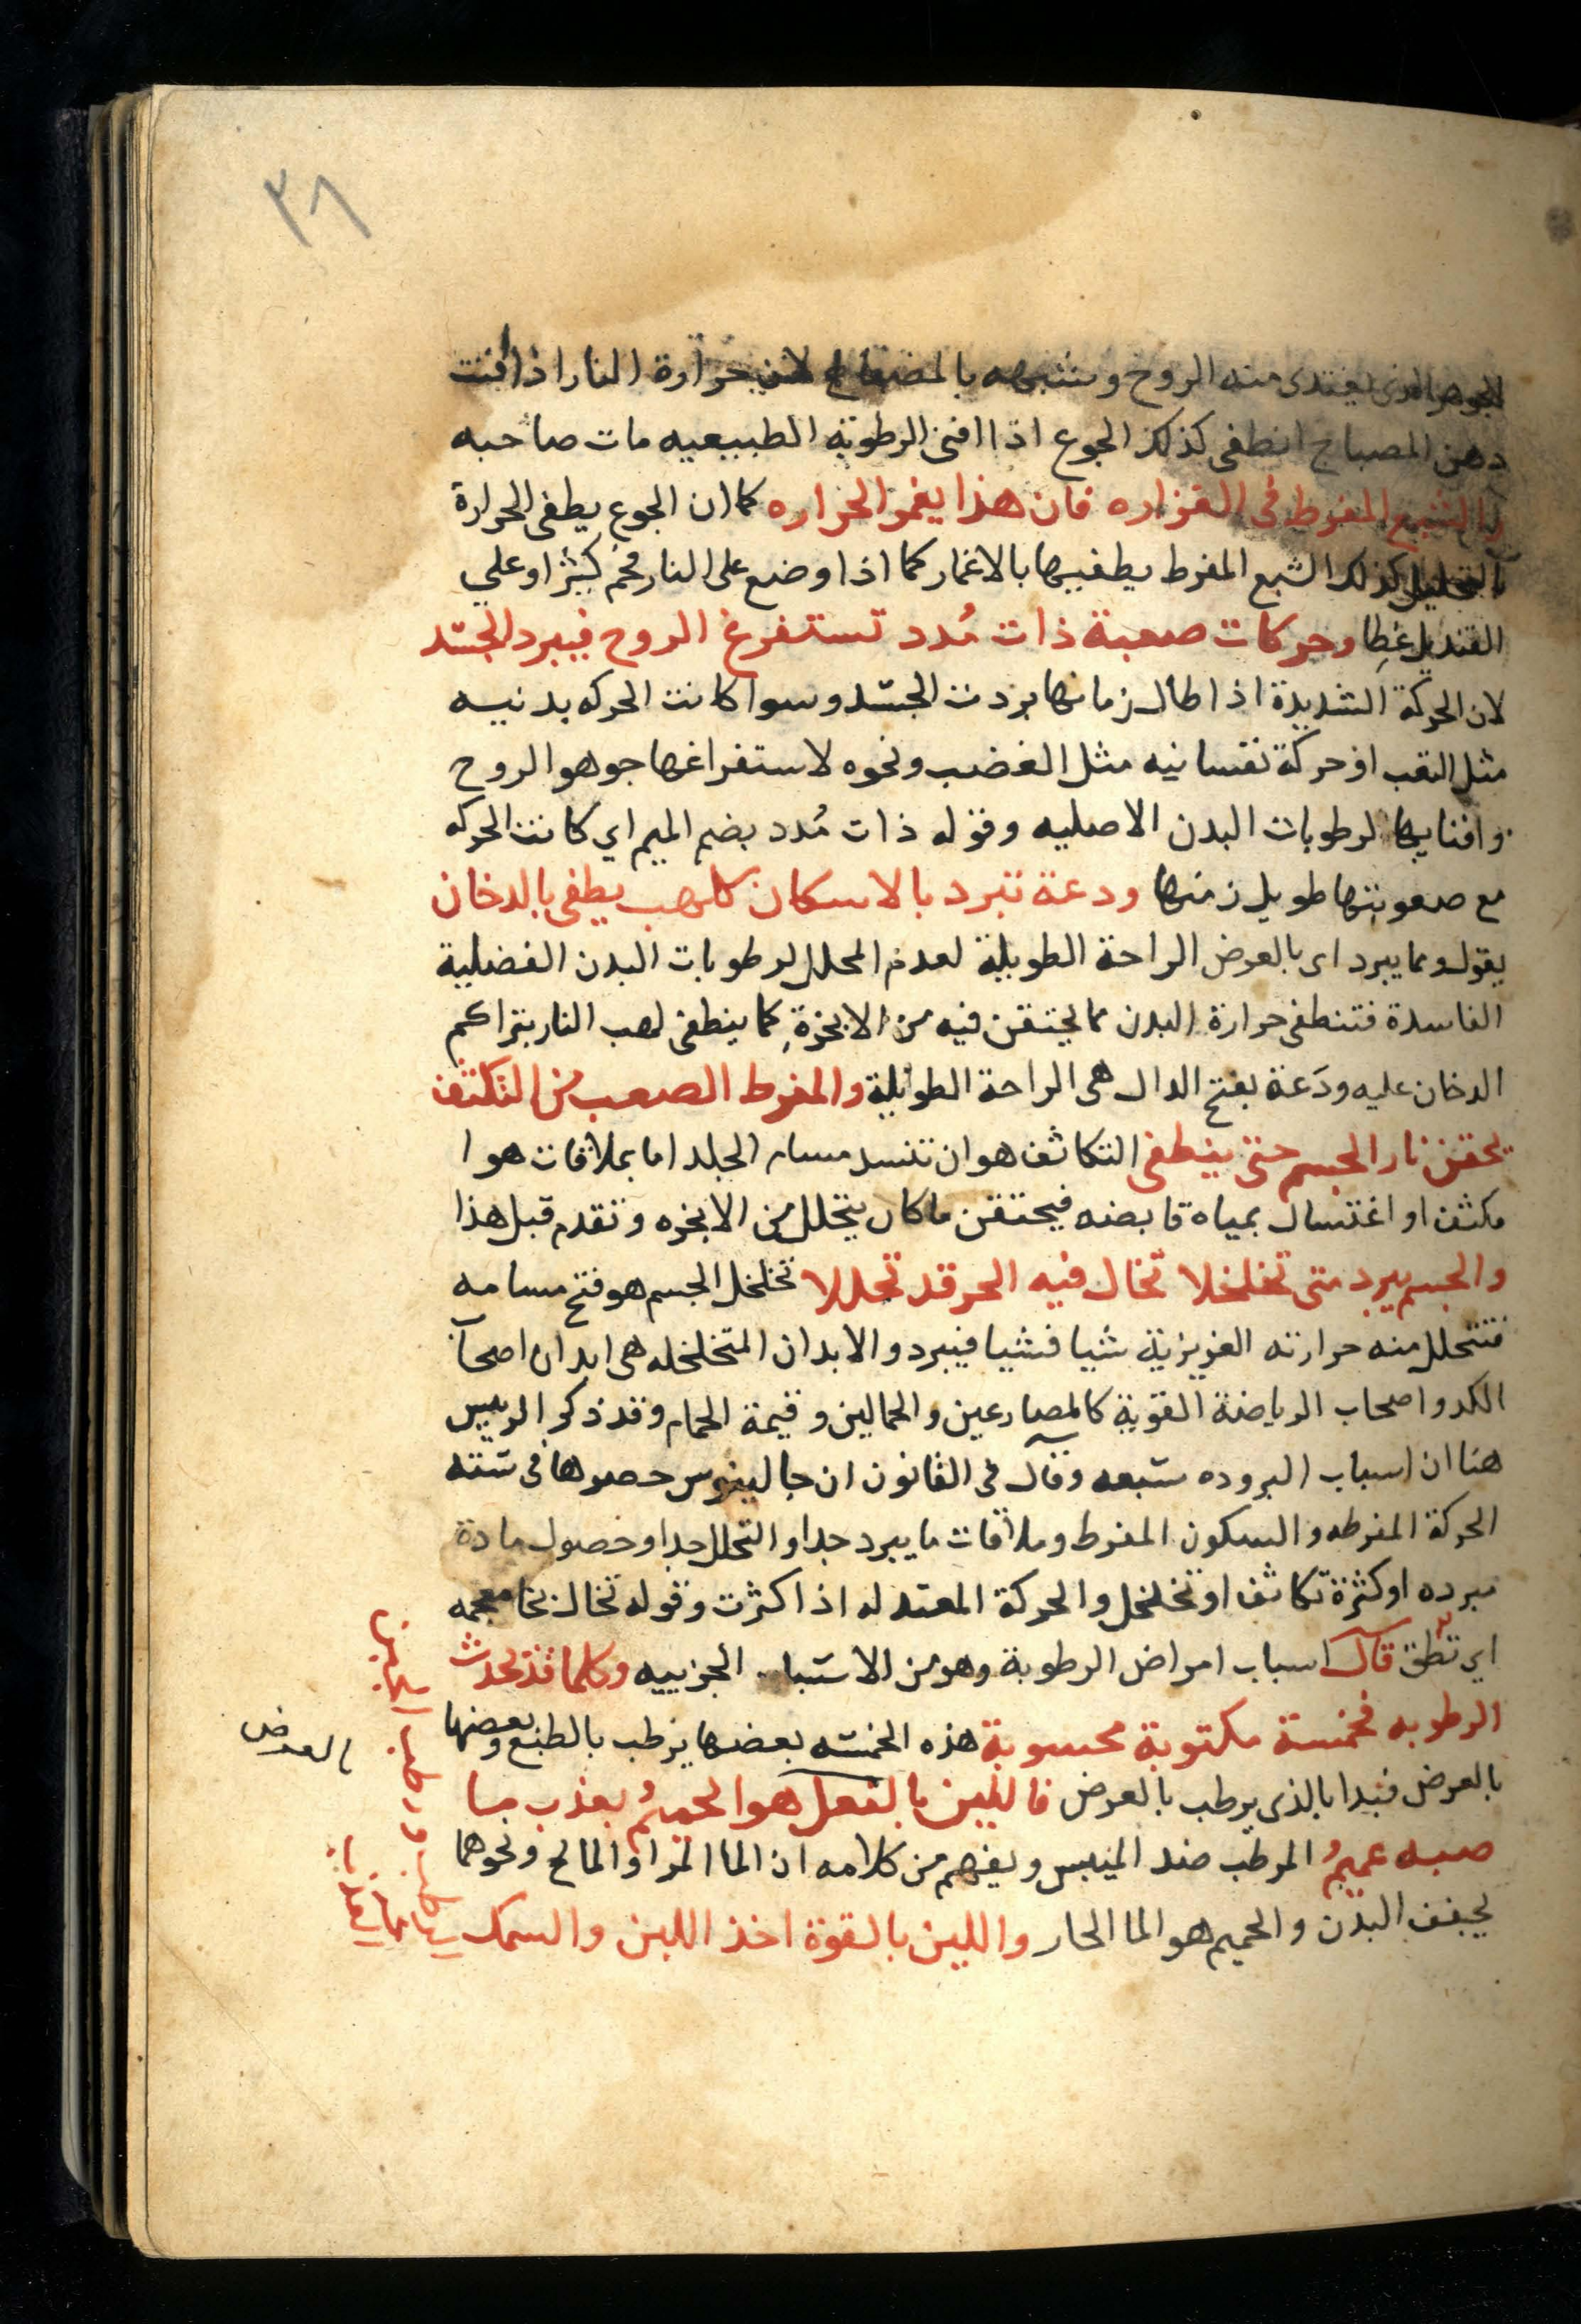 ٣٦
الجوهر الذى يغتدى منه الروح وشبهه بالمصباح لان حرارة النار اذا افنت
دهن المصباح انطفى كذلك الجوع اذا افنى الرطوبه الطبيعيه مات صاحبه
والشبع المفرط فى القزاره فان هذا يغمر الحراره كما ان الجوع يطفى الحرارة
بالتحليل كذلك الشبع المفرط يطفيها بالاغمار كما اذا وضع على النار فحم كثير او علي
القنديل غطا وحركات صعبة ذات مُدد تستفرغ الروح فيبرد الجسد
لان الحركة الشديدة اذا طال زمانها بردت الجسد وسوا كانت الحركه بدنيه
مثل التعب او حركة نفسانيه مثل الغضب ونحوه لاستفراغها جوهر الروح
وافنايها لرطوبات البدن الاصليه وقوله ذات مُدد بضم الميم اي كانت الحركه
مع صعوبتها طويل زمنها ودعة تبرد بالاسكان كلهب يطفى بالدخان
يقول ومما يبرد اى بالعرض الراحة الطويلة لعدم المحلل لرطوبات البدن الفضلية
الفاسدة فتنطفى حرارة البدن مما يحتقن فيه من الابخرة كما ينطفى لهب النار بتراكم
الدخان عليه ودَعة بفتح الدال هى الراحة الطويلة والمفرط الصعب من التكثف
يحقن نار الجسم حتى ينطفى التكاثف هو ان تنسد مسام الجلد اما بملاقات هوا
مكثف او اغتسال بمياه قابضه فيحتقن ما كان يتحلل من الابخره وتقدم قبل هذا
والجسم يبرد متى تخلخلا تخال فيه الحر قد تحللا تخلخل الجسم هو فتح مسامه
فتتحلل منه حرارته الغريزية شيا فشيا فيبرد والابدان المتخلخله هى ابدان اصحاب
الكد واصحاب الرياضة القوية كالمصارعين والحمالين وقيمة الحمام وقد ذكر الرييس
هنا ان اسباب البروده ستبعه وقال فى القانون ان جالينوس حصرها فى ستته
الحركة المفرطه والسكون المفرط وملاقات ما يبرد جدا والتحلل جدا وحصول مادة
مبرده او كثرة تكاثف او تخلخل والحركة المعتدله اذا كثرت وقوله تخال بخا معجمه
اي تظن قال اسباب امراض الرطوبة وهو من الاسباب الجزييه وكلما قد يحدث
الرطوبه فخمسة مكتوبة محسوبة هذه الخمسه بعضها يرطب بالطبع وبعضها
بالعرض
بالعرض فبدا بالذى يرطب بالعرض فاللين بالفعل هو الحميمُ بعذب ما
صبه عميمُ المرطب ضد الميبس ويفهم من كلامه ان الما المر او المالح ونحوهما
يجفف البدن والحميم هو الما الحار واللين بالقوة اخذ اللبن والسمك